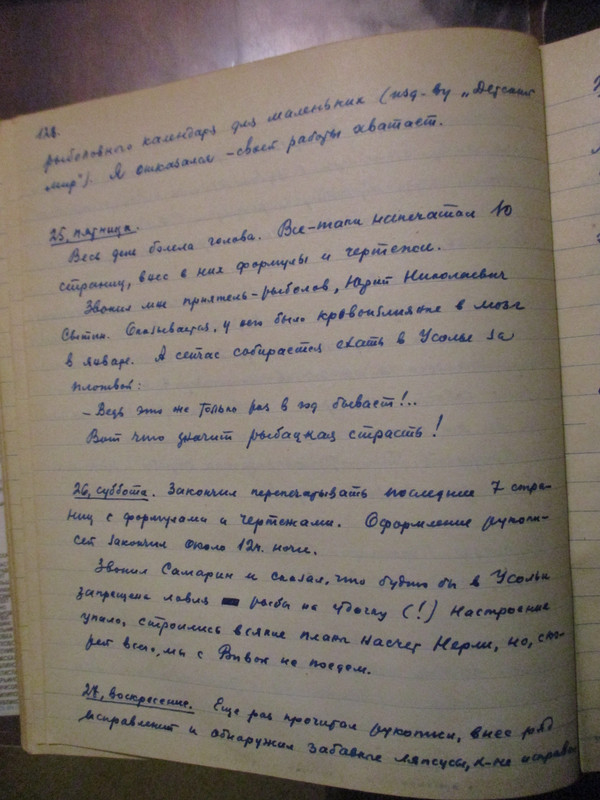 128.
рыболовного календаря для маленьких (изд-ву „Детский
мир"). Я отказался - своей работы хватает.
25, пятница.
Весь день болела голова. Все-таки напечатал 10
страниц, внес в них формулы и чертежи.
Звонил мне приятель-рыболов, Юрий Николаевич
Сытин. Оказывается, у него было кровоизлияние в мозг
в январе. А сейчас собирается ехать в Усолье за
плотвой:
- Ведь это же только раз в год бывает!..
Вот что значит рыбацкая страсть!
26, суббота. Закончил перепечатывать последние 7 стра-
ниц с формулами и чертежами. Оформление рукопи-
сей закончил около 12 ч. ночи.
Звонил Самарин и сказал, что будто бы в Усолье
запрещена ловля рыбы на удочку (!) Настроение
упало, строились всякие планы насчет Нерли, но, ско-
рей всего, мы с Вивой не поедем.
27, воскресение. Еще раз прочитал рукописи, внес ряд
исправлений и обнаружил забавные ляпсусы, к-не исправ